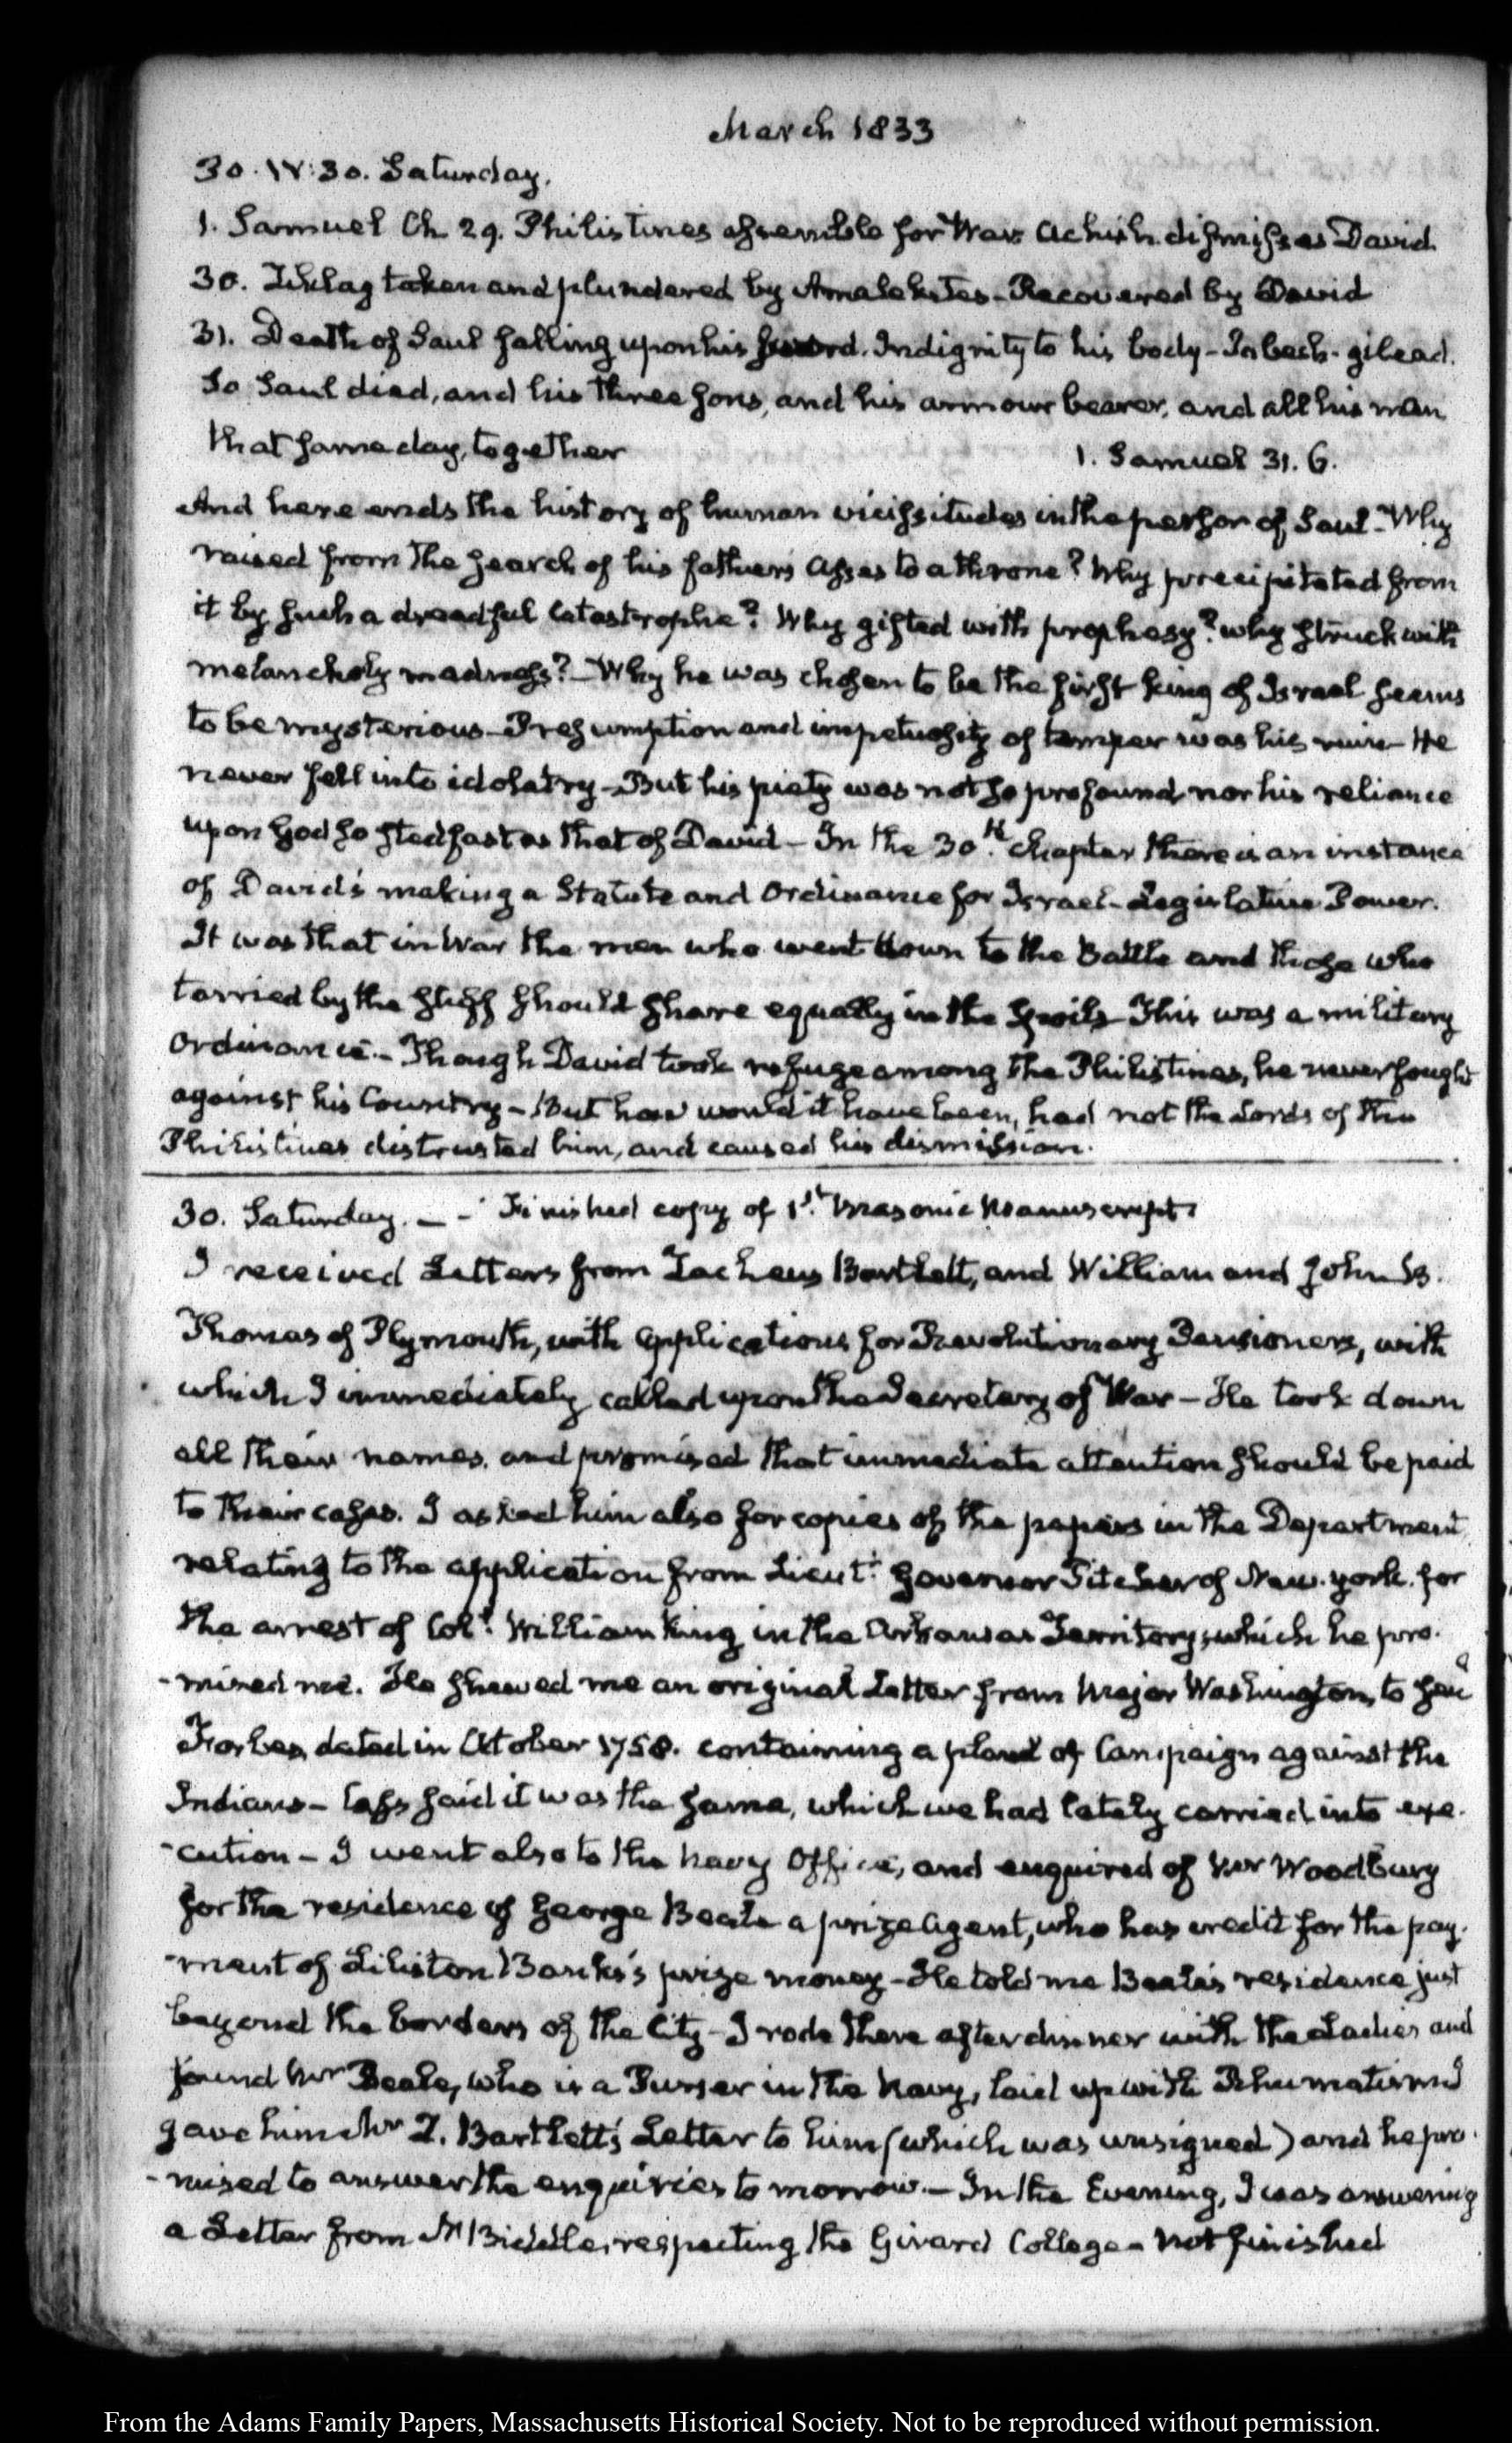 March 1833
30. IV:30. Saturday.
1. Samuel Ch 29. Philistines assemble for War. Achish dismisses David
30. Ziklag taken and plundered by Amalekites - Recovered by David
31. Death of Saul falling upon his sword. Indignity to his body - Jabesh-gilead.
So Saul died, and his three sons, and his armour bearer, and all his men
that same day, together
1. Samuel 31. 6.
And here ends the history of human vicissitudes in the person of Saul - Why
raised from the search of his father's asses to a throne? Why precipitated from
it by such a dreadful catastrophe? Why gifted with prophesy? why struck with
melancholy madness? - Why he was chosen to be the first king of Israel seems
to be mysterious - Presumption and impetuosity of temper was his ruin - He
never fell into idolatry - But his piety was not so profound nor his reliance
upon God so stedfast as that of David - In the 30th. chapter there is an instance
of David's making a Statute and Ordinance for Israel - Legislative Power.
It was that in War the men who went down to the Battle and those who
tarried by the stuff should share equally in the Spoils - This was a military
Ordinance. - Though David took refuge among the Philistines, he never fought
against his Country - But how would it have been, had not the Lords of the
Philistines distrusted him, and caused his dismission.
30. Saturday. - - Finished copy of 1st. Masonic Manuscript.
I received Letters from Zacheus Bartlett, and William and John B.
Thomas of Plymouth, with applications for Revolutionary Pensioners, with
which I immediately called upon the Secretary of War - He took down
all their names, and promised that immediate attention should be paid
to their cases. I asked him also for copies of the papers in the Department
relating to the application from Lieutt. Governor Pitcher of New-York. for
the arrest of Coll. William King in the Arkansas Territory, which he pro-
-mised me. He shewed me an original Letter from Major Washington, to Genl
Forbes, dated in October 1758. containing a plan of Campaign against the
Indians - Cass said it was the same, which we had lately carried into exe-
-cution - I went also to the Navy Office, and enquired of Mr Woodbury
for the residence of George Beale a prize Agent, who has credit for the pay-
-ment of Liliston Banks's prize money - He told me Beale's residence just
beyond the borders of the City - I rode there after dinner with the Ladies and
found Mr Beale, who is a Purser in the Navy, laid up with Rheumatism I
gave him Mr Z. Bartlett's Letter to him (which was unsigned) and he pro-
-mised to answer the enquiries to morrow. - In the Evening, I was answering
a Letter from N Biddle, respecting the Girard College - not finished
From the Adams Family Papers, Massachusetts Historical Society. Not to be reproduced without permission.